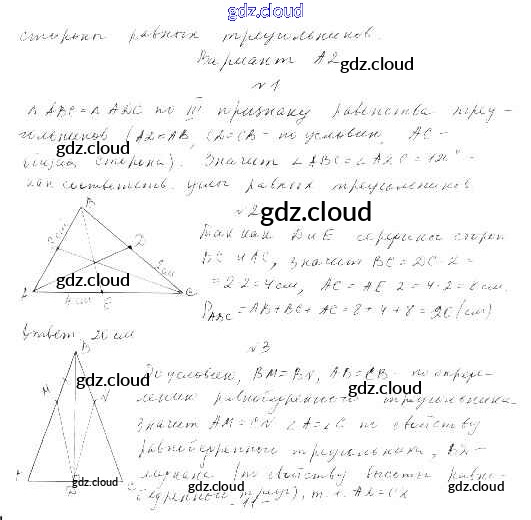 gdz.cloud
стороны равных треугольников.
Вариант А2
gdz.cloud
№1
△ ABC = △ ADC по III признаку равенства треу-
гольников (AD = AB, CD = CB - по условию, AC -
gdz.cloud
общая сторона). Значит ∠ABC = ∠ADC = 120° -
как соответств. углы равных треугольников
№2
gdz.cloud
B
D
A
E
C
gdz.cloud
Так как D и E середины сторон
BC и AC, значит BC = DC · 2 =
= 2 · 2 = 4 см, AC = AE · 2 = 4 · 2 = 8 см.
P ABC = AB + BC + AC = 8 + 4 + 8 = 20 (см)
Ответ: 20 см
№3
B
M
N
gdz.cloud
По условию, BM = BN, AB = CB - по опре-
gdz.cloud
делению равнобедренного треугольника.
Значит AM = CN ∠A = ∠C по свойству
равнобедренного треугольника, BD -
медиана (по свойству высоты равно-
бедренного треуг), т. е. AD = CD
gdz.cloud
gdz.cloud
- 11 -